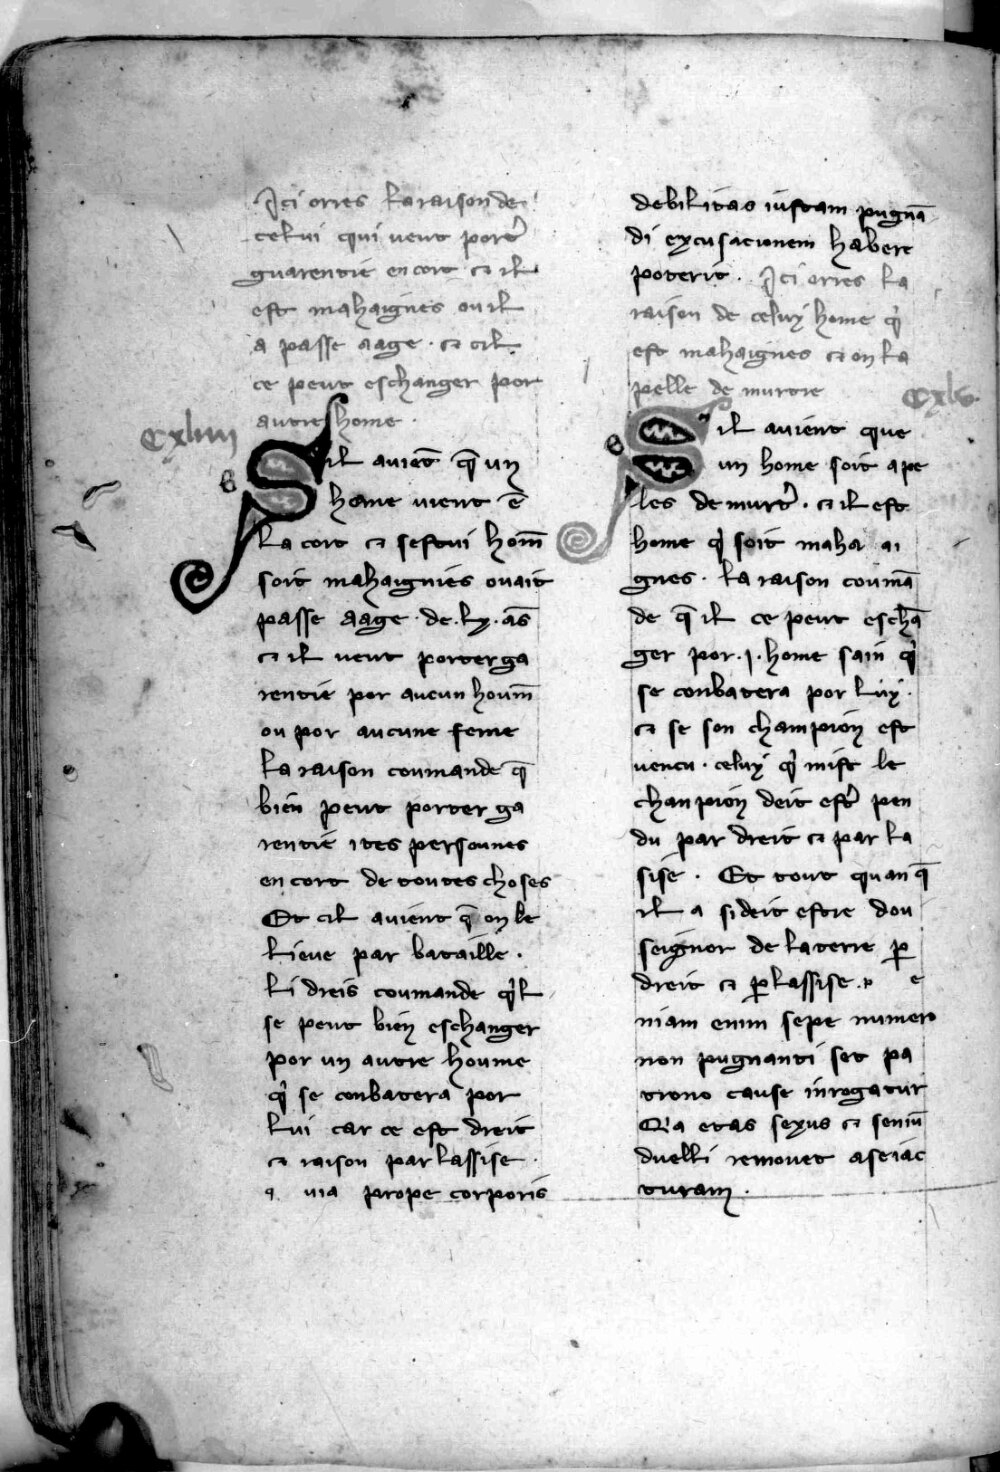 Ici orres la raison de
celui qui veut porter̾
guarentie en cort ⁊ il
est mahaignes ou il
a passe aage · ⁊ cil
ce peut eschanger por
autre home ·
Cxliiii
S il auiet̄ q̄ un
s
home vient ē
la cort ⁊ sestui hom̄
soit mahaignies ou ait
passe aage · de · lx · as̄
⁊ il veut porter ga
rentie por aucun houm̄
ou por aucune feme
la raison coumande q̄
bien peut porter ga
rentie ites persounes
en cort de toutes choses
Et cil auient q̄ on le
lieue par bataille ·
li dreis coumande qͥl
se peut bien eschanger
por un autre houme
qͥ se conbatera por
lui car ce est dreit
⁊ raison par lassise ·
q uia prope corporis
debilitas iustam pugnā
di excusacionem habere
poterit · Ici orres la
raison de celuy home qͥ
est mahaignes ⁊ on la
pelle de murtre
Cxlv·
S il auient que
s
un home soit ape
les de murtr̾ · ⁊ il est
home qͥ soit maha ai
gnes · la raison coumā
de q̄ il ce peut eschā
ger por · j · home sain qͥ
se conbatera por luy ·
⁊ se son champion est
vencu · celuy qͥ mist le
chanpion deit estr̾ pen
du par dreit ⁊ par la
sise · Et tout quan q̄
il a si deit estre dou
seignor de la terre ꝑ
dreit ⁊ ꝑ lassise · p e
niam enim sepe numero
non pugnanti set pa
trono cause inrogatur
Qa etas sexus ⁊ seniū
duelli remouet a se iac
turam ·